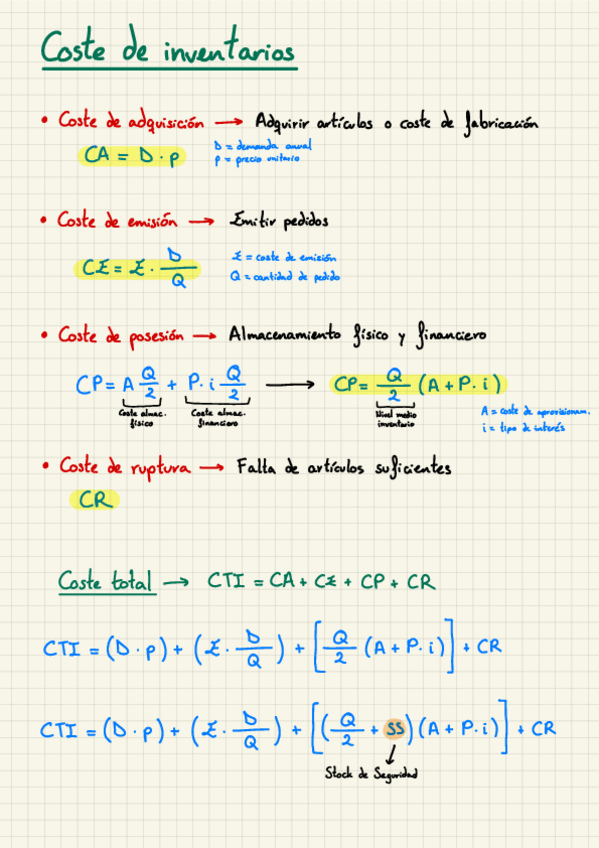 Coste de inventarios
• Coste de adquisición → Adquirir artículos o coste de fabricación
CA = D · p
D = demanda anual
p = precio unitario
• Coste de emisión → Emitir pedidos
CE = E · D/Q
E = coste de emisión
Q = cantidad de pedido
• Coste de posesión → Almacenamiento físico y financiero
CP = A Q/2 + P · i Q/2 → CP = Q/2 (A + P · i)
Coste almac. físico
Coste almac. financiero
Nivel medio inventario
A = coste de aprovisionam.
i = tipo de interés
• Coste de ruptura → Falta de artículos suficientes
CR
Coste total → CTI = CA + CE + CP + CR
CTI = (D · p) + (E · D/Q) + [Q/2 (A + P · i)] + CR
CTI = (D · p) + (E · D/Q) + [(Q/2 + SS) (A + P · i)] + CR
Stock de Seguridad